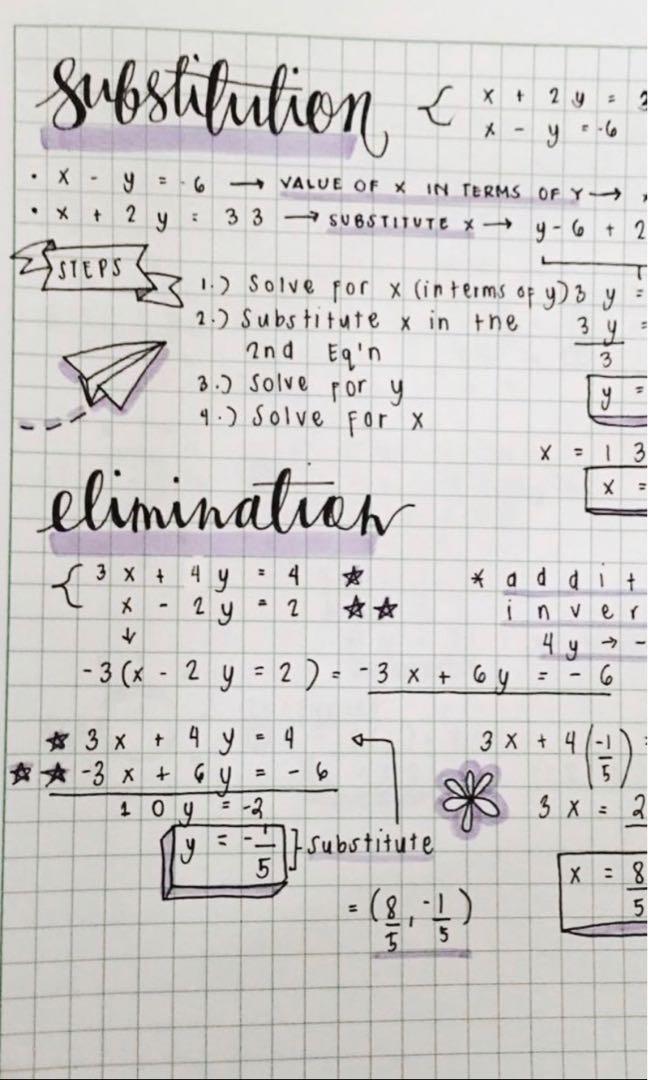 substitution { x + 2y = 3
x - y = -6
• x - y = -6 → VALUE OF X IN TERMS OF Y →
• x + 2y = 33 → SUBSTITUTE X → y - 6 + 2
STEPS
1.) Solve for x (in terms of y) 3y =
2.) Substitute x in the 3y =
2nd Eq'n 3
3.) Solve for y y =
4.) Solve for x
x = 13
x =
elimination
3x + 4y = 4 ☆ * addit
x - 2y = 2 ☆☆ inver
↓ 4y → -
-3(x - 2y = 2) = -3x + 6y = -6
☆ 3x + 4y = 4 3x + 4(-1/5) =
☆☆ -3x + 6y = -6
10y = -2 3x = 2
y = -1/5 ] substitute x = 8/5
= (8/5, -1/5)